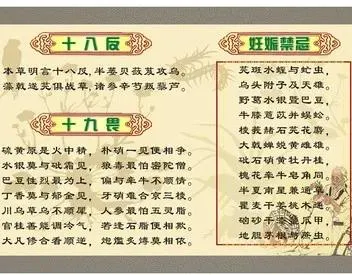 十八反
本草明言十八反，半蒌贝蔹芨攻乌。
藻戟遂芫俱战草，诸参辛芍叛藜芦。
十九畏
硫黄原是火中精， 朴硝一见便相争。
水银莫与砒霜见， 狼毒最怕密陀僧。
巴豆性烈最为上， 偏与牵牛不顺情。
丁香莫与郁金见， 牙硝难合京三棱。
川乌草乌不顺犀， 人参最怕五灵脂。
官桂善能调冷气， 若逢石脂便相欺。
大凡修合看顺逆， 炮爁炙煿莫相依。
妊娠禁忌
芫斑水蛭与虻虫，
乌头附子及天雄。
野葛水银暨巴豆，
牛膝薏苡并蜈蚣。
棱莪赭石芫花麝，
大戟蝉蜕黄雌雄。
砒石硝黄牡丹桂，
槐花牵牛皂角同。
半夏南星兼通草，
瞿麦干姜桃木通。
硇砂干漆蟹爪甲，
地胆茅根与蔗虫。